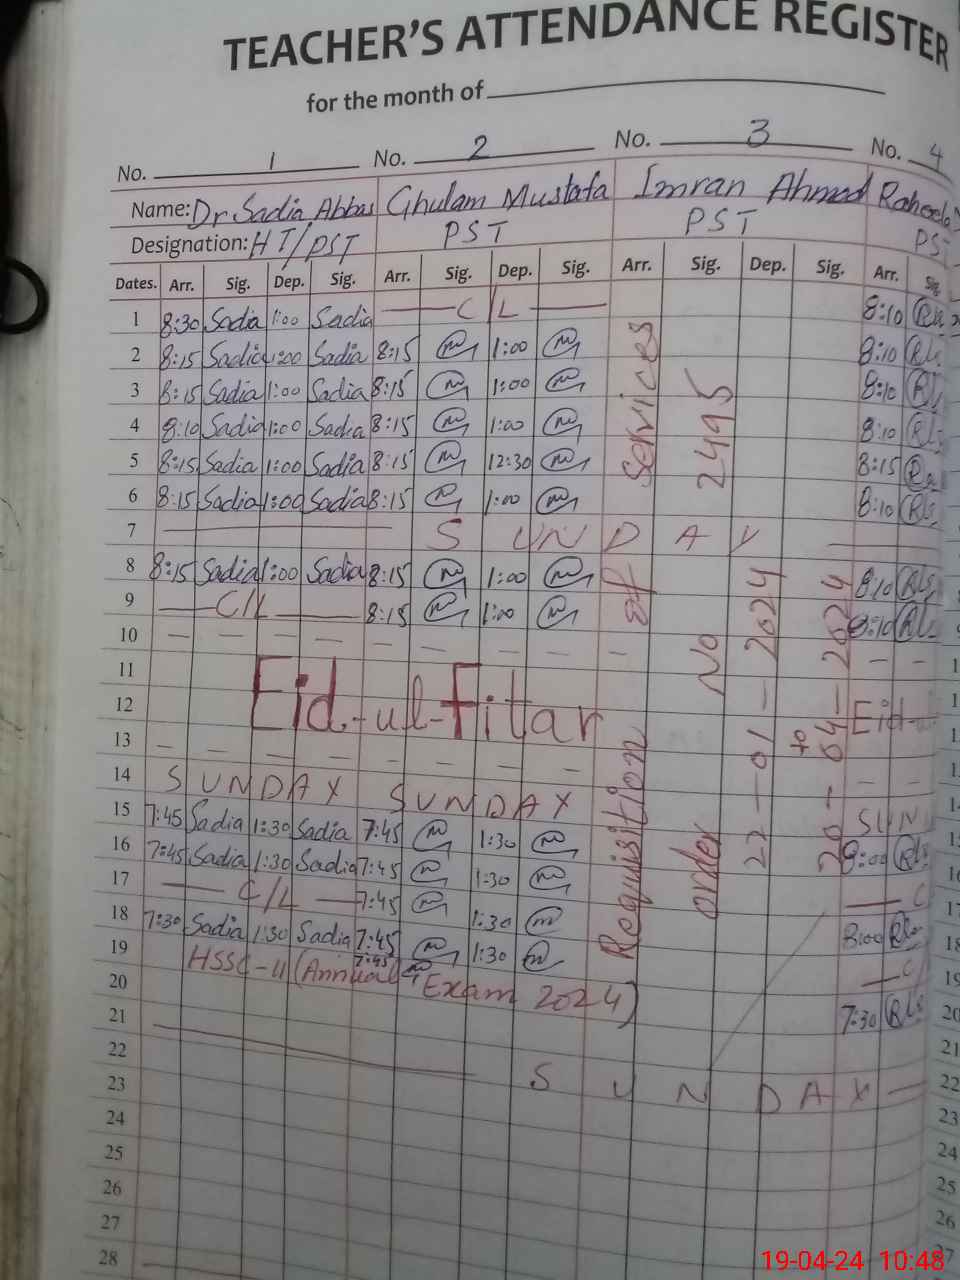 TEACHER'S ATTENDANCE REGISTER
for the month of
No. 1 No. 2 No. 3 No. 4
Name: Dr Sadia Abbas Ghulam Mustafa Imran Ahmad Raheela
Designation: HT/PST PST PST PST
Dates. Arr. Sig. Dep. Sig. Arr. Sig. Dep. Sig. Arr. Sig. Dep. Sig. Arr. Sig.
1 8:30 Sadia 1:00 Sadia C/L 8:10
2 8:15 Sadia 1:00 Sadia 8:15 1:00 8:10
3 8:15 Sadia 1:00 Sadia 8:15 1:00 8:10
4 8:10 Sadia 1:00 Sadia 8:15 1:00 8:10
5 8:15 Sadia 1:00 Sadia 8:15 12:30 8:15
6 8:15 Sadia 1:00 Sadia 8:15 1:00 8:10
7 SUNDAY
8 8:15 Sadia 1:00 Sadia 8:15 1:00 8:10
9 C/L 8:15 1:00 8:10
10
11
12 Eid-ul-Fitar Eid-
13
14 SUNDAY SUNDAY SUN
15 7:45 Sadia 1:30 Sadia 7:45 1:30 8:00
16 7:45 Sadia 1:30 Sadia 7:45 1:30 C
17 C/L 7:45 1:30 8:00
18 7:30 Sadia 1:30 Sadia 7:45 1:30 C/
19 7:45 7:30
HSSC-II (Annual Exam 2024)
20
21 SUNDAY
22
23
24
25
26
27
28
Requisition of Services
order No 2495
22-01-2024
to
20-04-2024
19-04-24 10:48